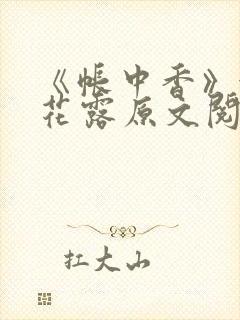 《帐中香》
花露原文阅
扛大山